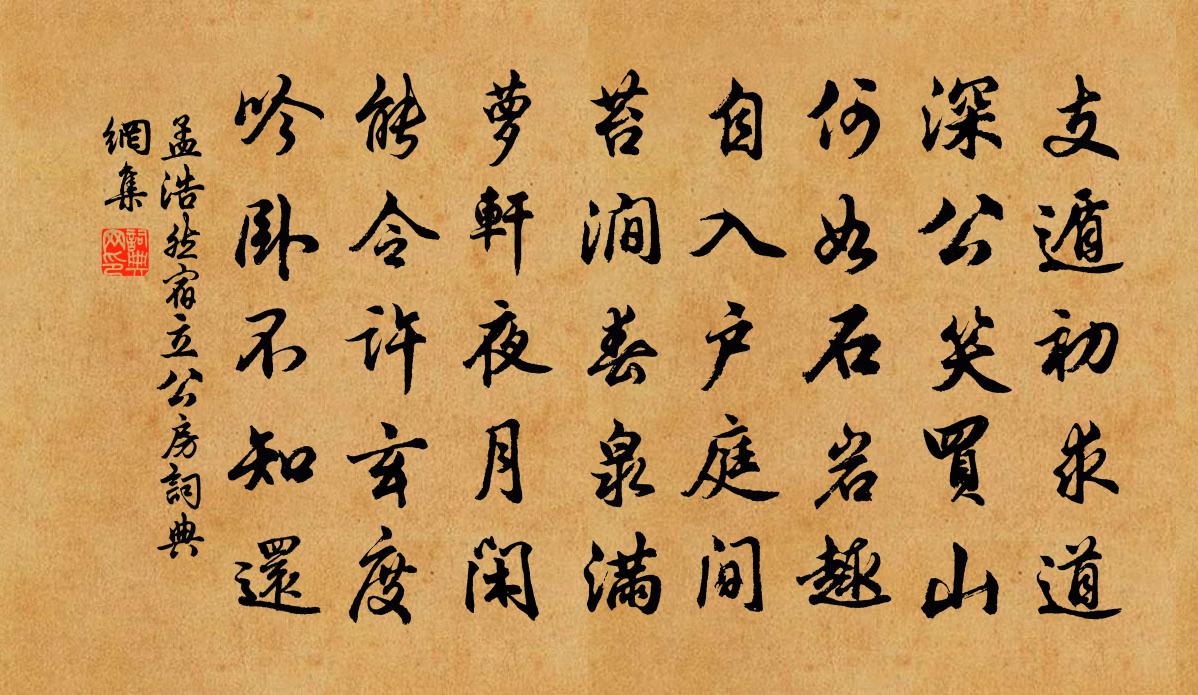 支遁初求道
深公笑買山
何如石岩趣
自入户庭间
苔澗春泉满
萝軒夜月闲
能令许玄度
吟卧不知還
孟浩然宿立公房詞典
網集
詞典網印